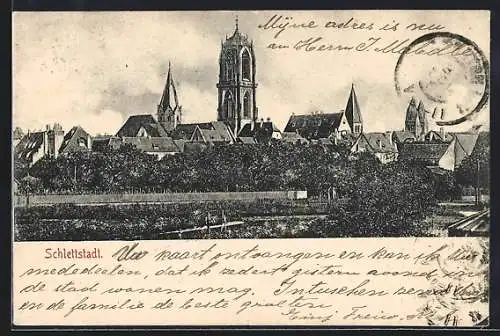 Mijne adres is nu
an Herrn J.
Schlettstadt. Uw kaart ontvangen en kan ik U
mededeelen, dat ik sedert gisteren avond in
de stad wonen mag. Intusschen
en de familie de beste groeten